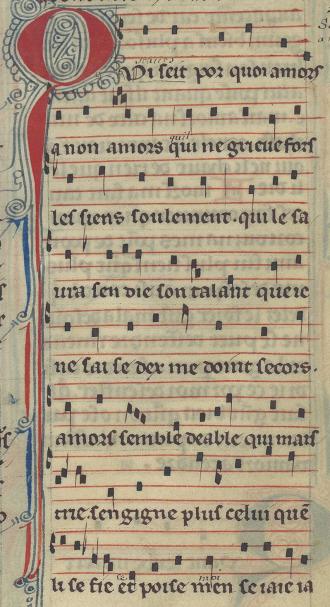 Qui seit por quoi amors
a non amors qui ne grieue fors
les siens soulement. qui le sa
ura sen die son talant que ie
ne sai se dex me doint secors.
amors semble deable qui mais
trie. sengigne plus celui que
li se fie et poise men se iaie ia